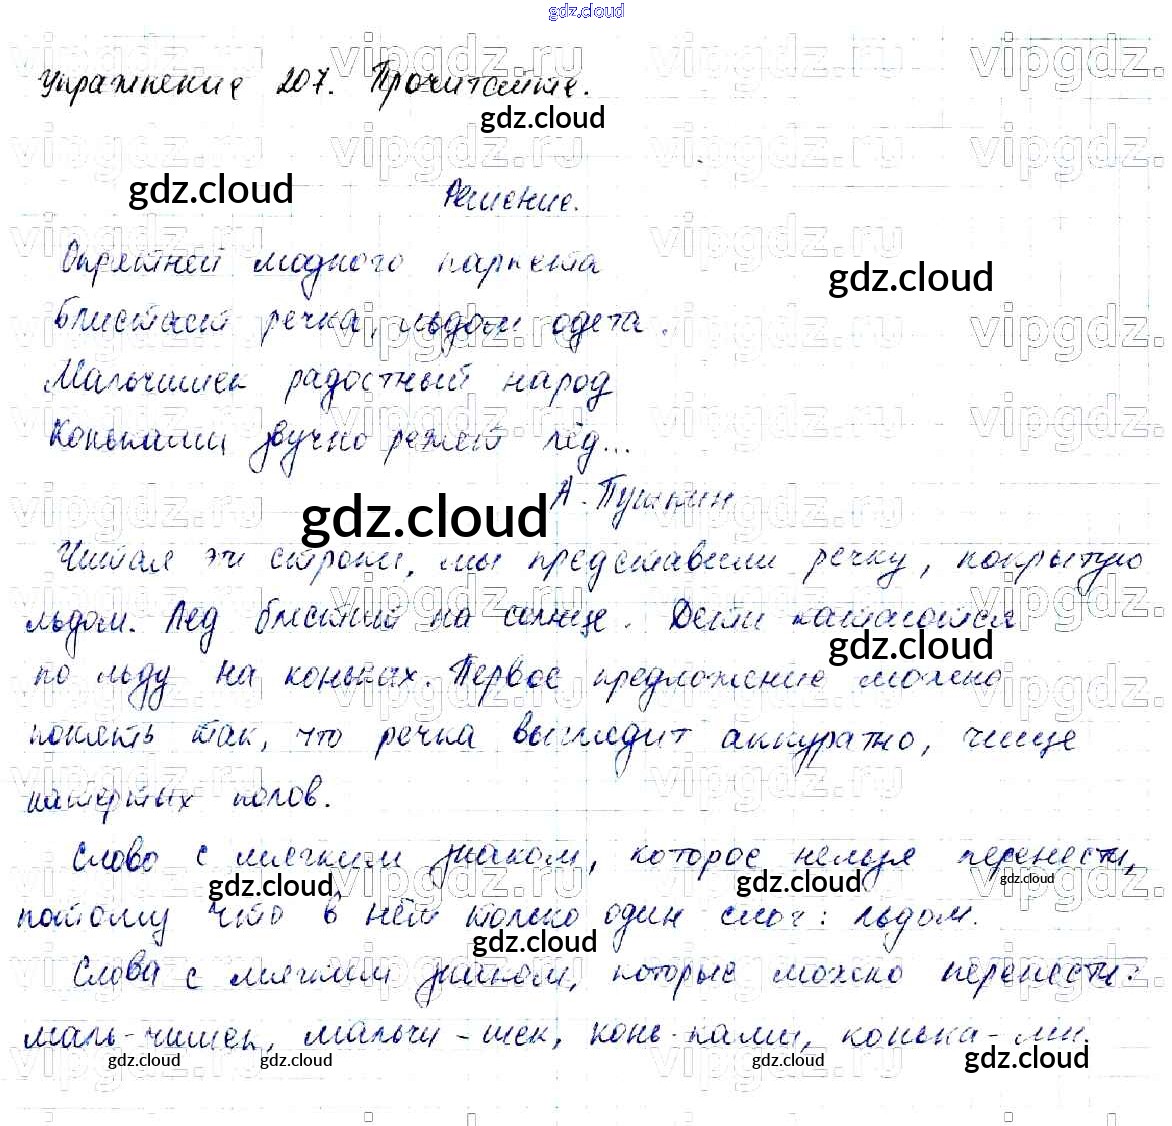 gdz.cloud
Упражнение 207. Прочитайте.
gdz.cloud
gdz.cloud
Решение.
Опрятней модного паркета
gdz.cloud
Блистает речка, льдом одета.
Мальчишек радостный народ
Коньками звучно режет лёд...
А. Пушкин
gdz.cloud
Читая эти строки, мы представили речку, покрытую
льдом. Лед блестит на солнце. Дети катаются
gdz.cloud
по льду на коньках. Первое предложение можно
понять так, что речка выглядит аккуратно, чище
натертых полов.
Слово с мягким знаком, которое нельзя перенести,
gdz.cloud gdz.cloud gdz.cloud
потому что в нём только один слог: льдом.
gdz.cloud
Слова с мягким знаком, которые можно перенести:
маль-чишек, мальчи-шек, конь-ками, конька-ми.
gdz.cloud gdz.cloud gdz.cloud gdz.cloud
vipgdz.ru